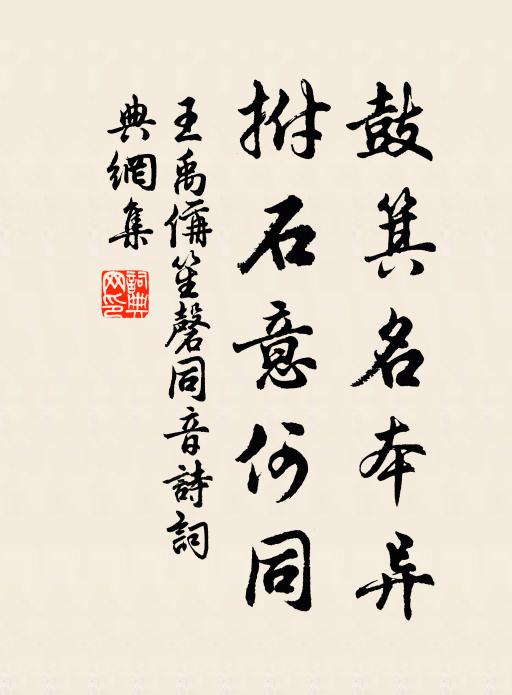 鼓箕名本异
拊石意何同
王禹偁笙磬同音詩詞
典網集
詞典
网印